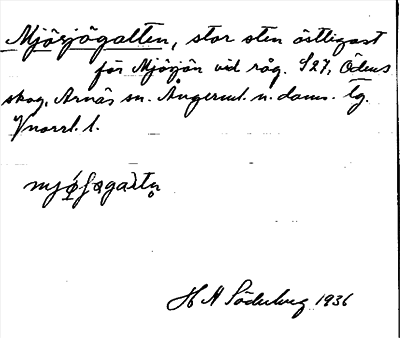 Mjösjögalten, stor sten östligast
för Mjösjön vid råg. 827, Ödens
skog, Arnäs sn. Ångerml. n. doms. lg.
Vnorrl. l.
H A Söderberg 1936